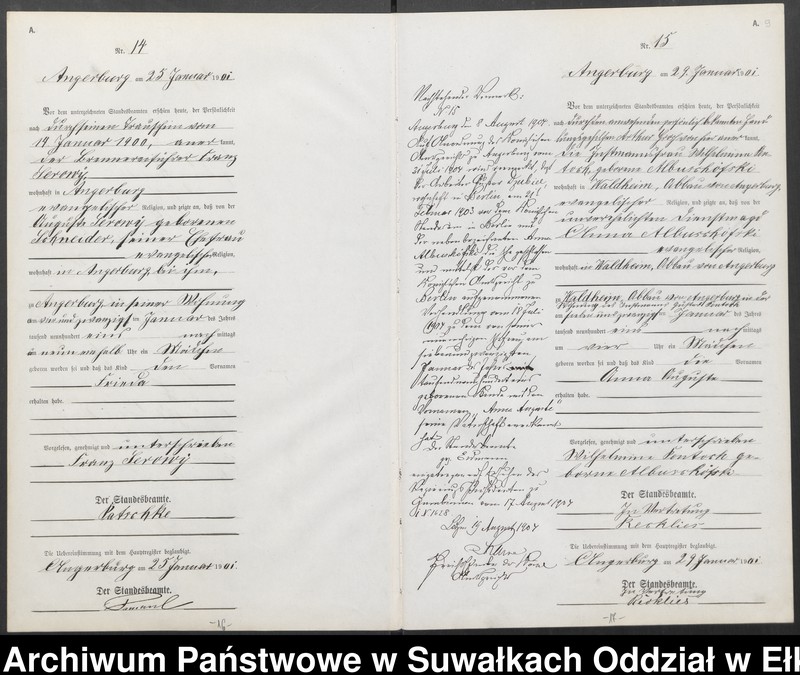 A.
Nr. 14
Angerburg am 25 Januar 1901
Vor dem unterzeichneten Standesbeamten erschien heute, der Persönlichkeit
nach durch seinen Trauschein vom
14 Januar 1900, aner kannt,
der Brennereiführer Franz
Serowy
wohnhaft in Angerburg
evangelischer Religion, und zeigte an, daß von der
Auguste Serowy geborenen
Schneider, seiner Ehefrau
evangelischer Religion,
wohnhaft in Angerburg bei ihm,
zu Angerburg in seiner Wohnung
am vier und zwanzigsten Januar des Jahres
tausend neunhundert eins nach mittags
um neun einhalb Uhr ein Mädchen
geboren worden sei und daß das Kind den Vornamen
Frieda
erhalten habe.
Vorgelesen, genehmigt und unterschrieben
Franz Serowy
Der Standesbeamte.
Patschke
Die Uebereinstimmung mit dem Hauptregister beglaubigt.
Angerburg am 25 Januar 1901
Der Standesbeamte.
Nachstehender Vermerk:
N 15
Angerburg den 8 August 1904
Auf Anordnung des Königlichen
Amtsgerichts zu Angerburg vom
Juli 1904 wird vermerkt, daß
der Arbeiter Gustav
in Berlin am 21
Februar 1903 vor dem Königlichen
Standesamt in Berlin mit
der neben bezeichneten Anna
Alburschófski die Ehe geschlossen
und mittelst der vor dem
Königlichen Amtsgericht zu
Berlin aufgenommenen
Verhandlung vom Juli
1904 zu dem von seiner
Ehefrau am
siebenundzwanzigsten
Januar des Jahres
tausendneunhundert eins
geborenen Kinde mit den
Vornamen „Anna Auguste“
seine Vaterschaft anerkannt
hat.
Der Standesbeamte
eingetragen auf Ersuchen des
Regierungs Präsidenten zu
Gumbinnen vom 17 August 1904
Lötzen 19 August 1904
A.
9
Nr. 15
Angerburg am 29 Januar 1901
Vor dem unterzeichneten Standesbeamten erschien heute, der Persönlichkeit
nach durch den anwesenden persönlich bekannten
Arthur von hier aner kannt,
die Instmannsfrau Wilhelmine
geborene Alburschófski
wohnhaft in Waldheim, Abbau von Angerburg,
evangelischer Religion, und zeigte an, daß von der
unverehelichten Dienstmagd
Anna Alburschófski
evangelischer Religion,
wohnhaft in Waldheim, Abbau von Angerburg
zu Waldheim, Abbau von Angerburg in der
Wohnung des Instmanns Gustav
am sieben und zwanzigsten Januar des Jahres
tausend neunhundert eins nach mittags
um vier Uhr ein Mädchen
geboren worden sei und daß das Kind die Vornamen
Anna Auguste
erhalten habe.
Vorgelesen, genehmigt und unterschrieben
Wilhelmine ge-
borne Alburschófski
Der Standesbeamte.
In Vertretung
Recklies
Die Uebereinstimmung mit dem Hauptregister beglaubigt.
Angerburg am 29 Januar 1901
Der Standesbeamte.
In Vertretung
Recklies
Archiwum Państwowe w Suwałkach Oddział w Ełk